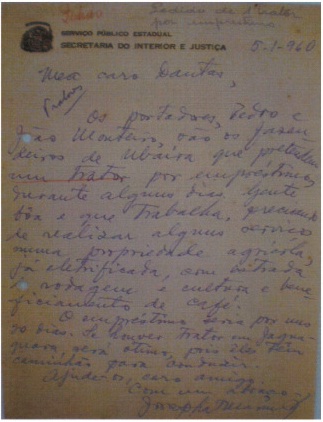 Pedido de 1 trator
por empréstimo
SERVIÇO PÚBLICO ESTADUAL
SECRETARIA DO INTERIOR E JUSTIÇA
5-1-960
Meu caro Dantas,
Os portadores, Pedro e
João Monteiro, são os fazen
deiros de Ubaíra que pretendem
um trator por empréstimo,
durante alguns dias. Gente
bôa e que trabalha, precisando
de realizar alguns serviços
numa propriedade agrícola,
já eletrificada, com estrada
de rodagem e cultura e bene-
ficiamento de café.
O empréstimo seria por uns
20 dias. Se houver trator em Jagua-
quara, será ótimo, pois eles têm
caminhão para conduzir.
Ajude-os, caro amigo.
Com um abraço
Josaphat